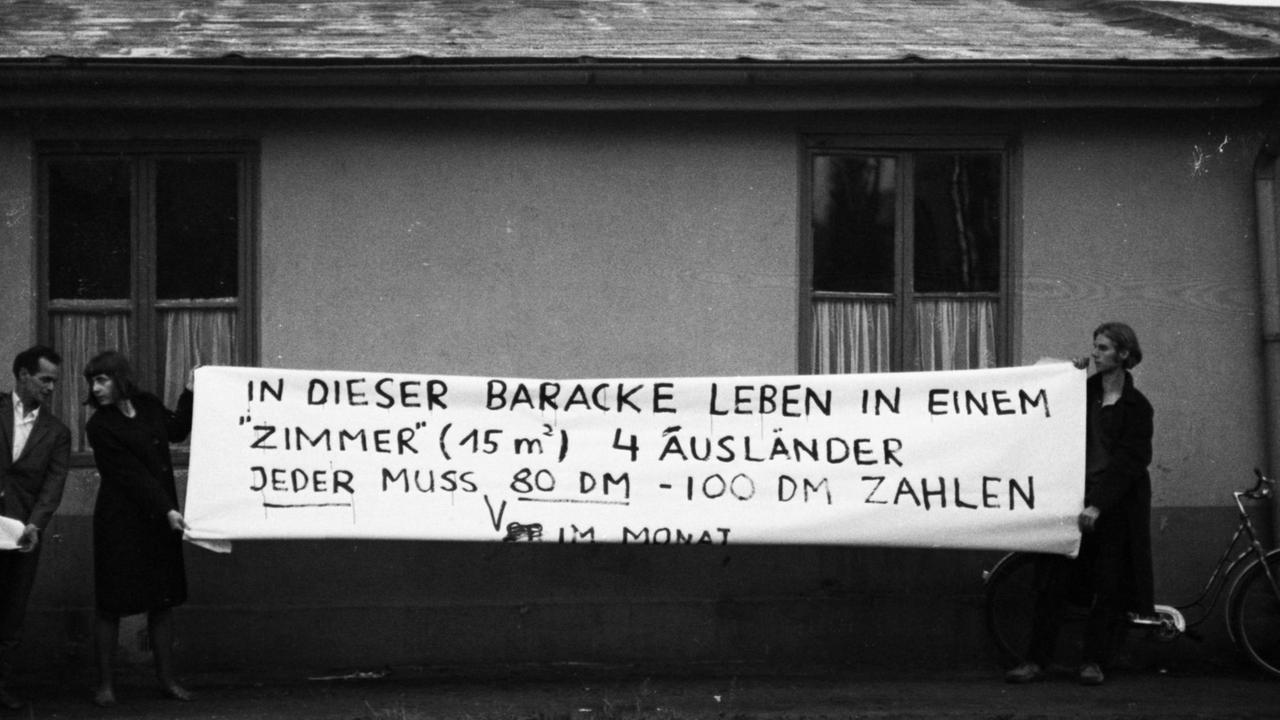 IN DIESER BARACKE LEBEN IN EINEM
"ZIMMER" (15 m²) 4 AUSLÄNDER
JEDER MUSS 80 DM -100 DM ZAHLEN
IM MONAT